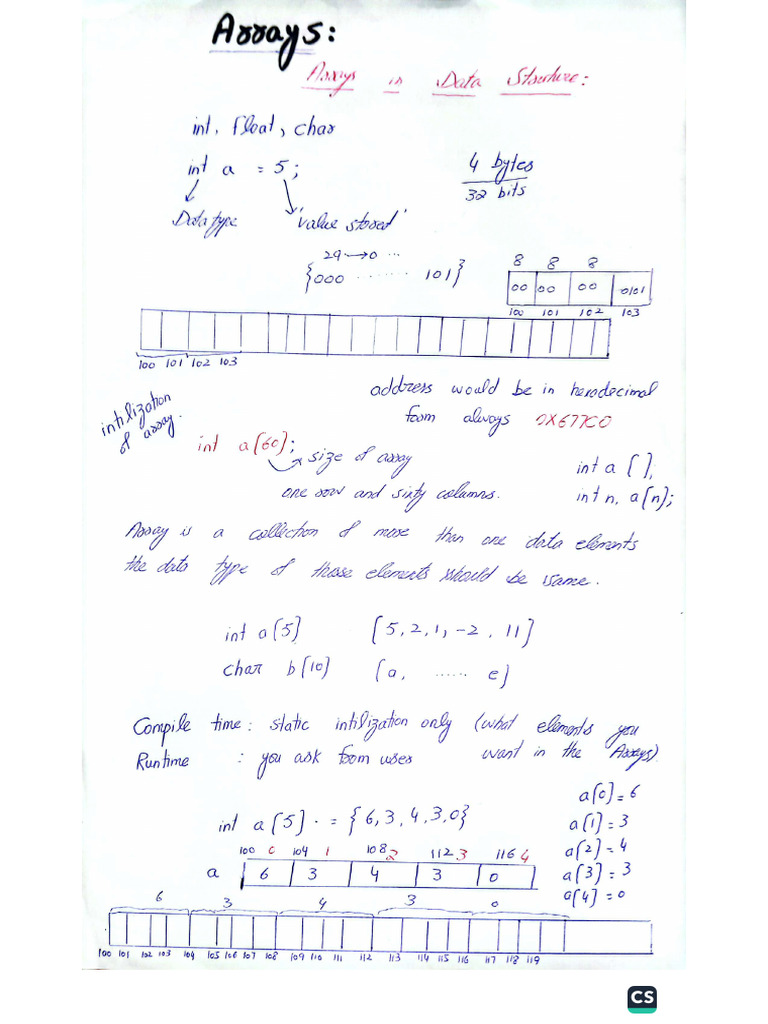 Arrays:
Arrays in Data Structure:
int, float, char
int a = 5;
4 bytes
32 bits
Data type
"value stored"
29 → 0 ...
{000 ........ 101}
8 8 8
00 00 00 0101
100 101 102 103
100 101 102 103
address would be in hexadecimal
form always 0X677C0
intilization
of array.
int a[60];
size of array
int a [],
one row and sixty columns.
int n, a[n];
Array is a collection of more than one data elements
the data type of those elements should be same.
int a[5] [5, 2, 1, -2, 11]
char b[10] [a, ...... e]
Compile time: static intilization only (what elements you
want in the Arrays)
Runtime : you ask from user
int a[5] = {6, 3, 4, 3, 0}
a[0] = 6
a[1] = 3
a[2] = 4
a[3] = 3
a[4] = 0
100 0 104 1 108 2 112 3 116 4
a 6 3 4 3 0
6 3 4 3 0
100 101 102 103 104 105 106 107 108 109 110 111 112 113 114 115 116 117 118 119
CS